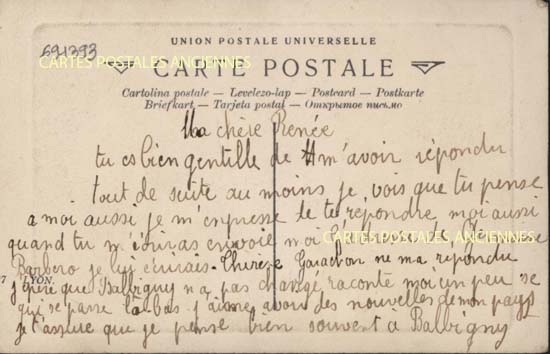 691393
CARTES POSTALES ANCIENNES
UNION POSTALE UNIVERSELLE
CARTE POSTALE
Cartolina postale — Levelezo-lap — Postcard — Postkarte
Briefkart — Tarjeta postal — Открытое письмо
Ma chère Renée
tu es bien gentille de m'avoir répondu
tout de suite au moins je vois que tu pense
a moi aussi je m'empresse de te répondre moi aussi
quand tu m'écriras envoie moi l'adresse de
CARTES POSTALES ANCIENNES
Barbero je lui écrirais. Thérèse ne ma répondu
7 LYON.
j'espère que Balbigny n'a pas changé raconte moi un peu se
qui se passe la-bas j'aime avoir des nouvelles de mon pays
je t'assure que je pense bien souvent à Balbigny